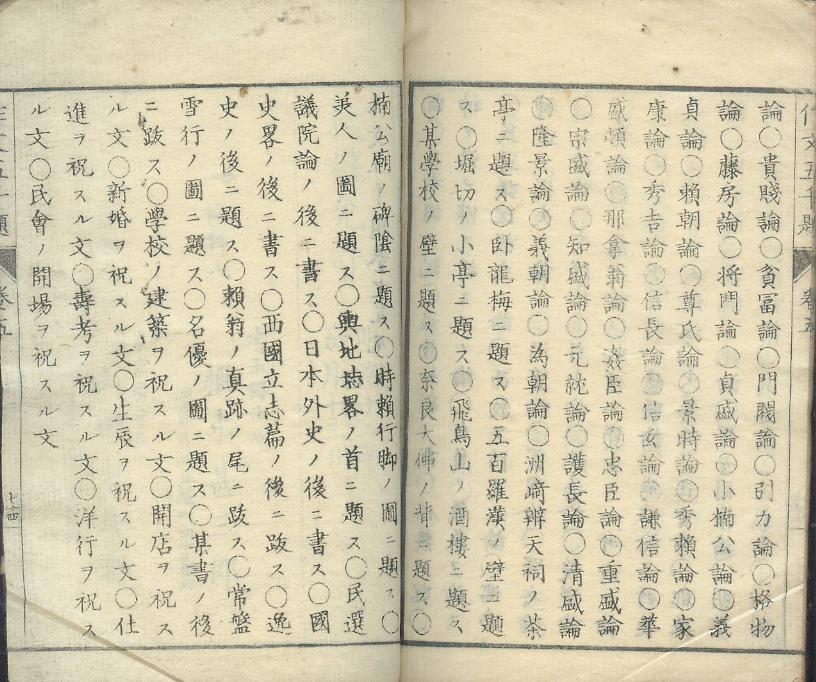 論○貴賤論○貧冨論○門閥論○引力論○格物
論○藤房論○将門論○貞盛論○小楠公論○義
貞論○頼朝論○尊氏論○景時論○秀頼論○家
康論○秀吉論○信長論○信玄論○謙信論○華
盛頓論○那拿翁論○姦臣論○忠臣論○重盛論
○宗盛論○知盛論○元就論○護良論○清盛論
○隆景論○義朝論○為朝論○洲﨑辨天祠ノ茶
亭ニ題ス○臥龍梅ニ題ス○五百羅漢ノ壁ニ題
ス○堀切ノ小亭ニ題ス○飛鳥山ノ酒樓ニ題ス
○某學校ノ壁ニ題ス○奈良大佛ノ背ニ題ス○
楠公廟ノ碑陰ニ題ス○時賴行脚ノ圖ニ題ス○
美人ノ圖ニ題ス○輿地誌畧ノ首ニ題ス○民選
議院論ノ後ニ書ス○日本外史ノ後ニ書ス○國
史畧ノ後ニ書ス○西國立志篇ノ後ニ跋ス○逸
史ノ後ニ題ス○賴翁ノ真跡ノ尾ニ跋ス○常盤
雪行ノ圖ニ題ス○名優ノ圖ニ題ス○某書ノ後
ニ跋ス○學校ノ建築ヲ祝スル文○開店ヲ祝ス
ル文○新婚ヲ祝スル文○生辰ヲ祝スル文○仕
進ヲ祝スル文○壽考ヲ祝スル文○洋行ヲ祝ス
ル文○民會ノ開場ヲ祝スル文
作文五千題
卷五
七十四